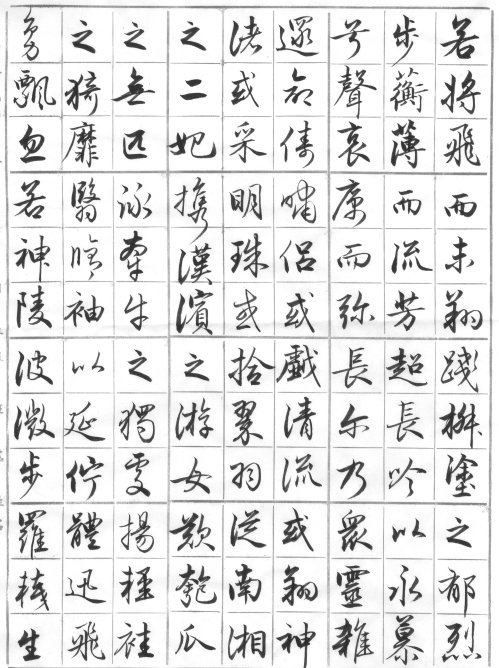 若將飛而未翔踐椒塗之郁烈
步蘅薄而流芳超長吟以永慕
兮聲哀厲而弥長尔乃眾靈雜
遝命儔嘯侶或戲清流或翔神
渚或采明珠或拾翠羽從南湘
之二妃携漢濱之游女歎匏瓜
之無匹詠牽牛之獨處揚輕袿
之猗靡翳脩袖以延佇體迅飛
鳧飄忽若神陵波微步羅襪生